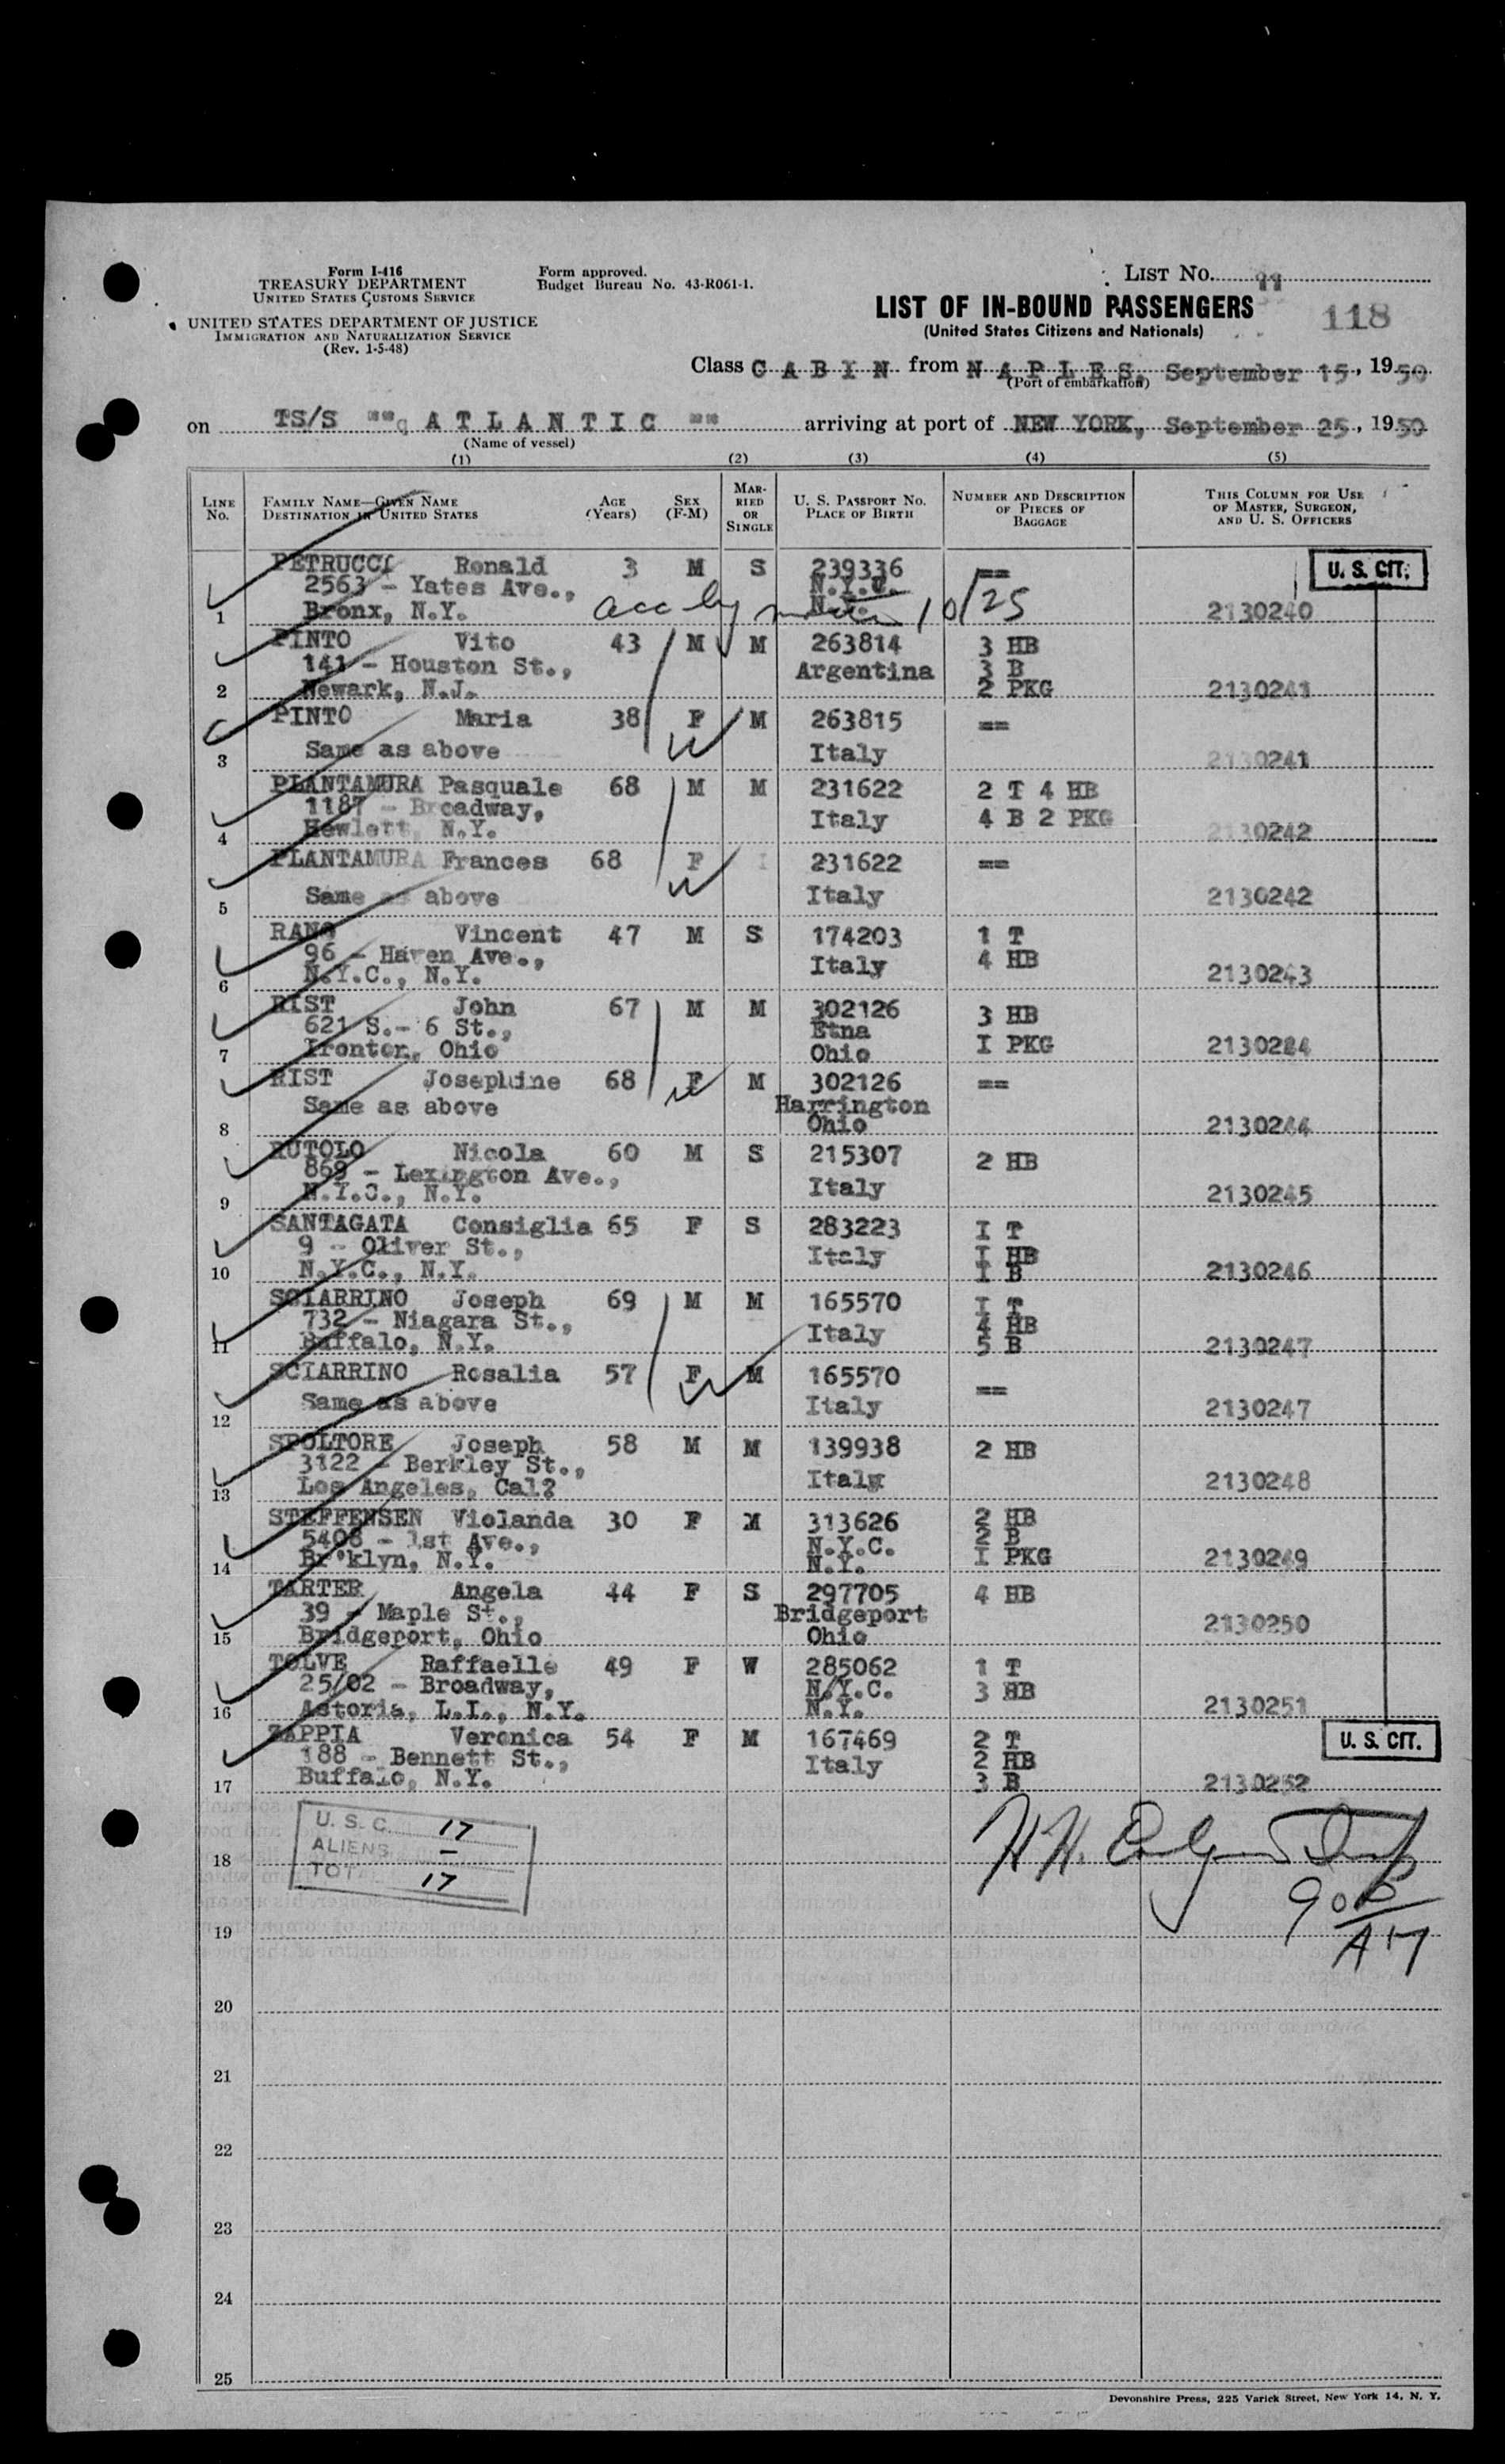 Form I-416
TREASURY DEPARTMENT
UNITED STATES CUSTOMS SERVICE
UNITED STATES DEPARTMENT OF JUSTICE
IMMIGRATION AND NATURALIZATION SERVICE
(Rev. 1-5-48)
Form approved.
Budget Bureau No. 43-R061-1.
LIST NO.
LIST OF IN-BOUND PASSENGERS
(United States Citizens and Nationals)
118
Class C A B I N from N A P L E S, September 15, 1950
(Port of embarkation)
on TS/S "" A T L A N T I C "" arriving at port of NEW YORK, September 25, 1950
(Name of vessel)
(1) (2) (3) (4) (5)
LINE NO. FAMILY NAME—GIVEN NAME DESTINATION IN UNITED STATES AGE (Years) SEX (F-M) MARRIED OR SINGLE U. S. PASSPORT NO. PLACE OF BIRTH NUMBER AND DESCRIPTION OF PIECES OF BAGGAGE THIS COLUMN FOR USE OF MASTER, SURGEON, AND U. S. OFFICERS
PETRUCCI Ronald 3 M S 239336 == U. S. CIT.
2563 - Yates Ave., N.Y.C.
1 Bronx, N.Y. acc by N.Y. 10/25 2130240
PINTO Vito 43 M M 263814 3 HB
141 - Houston St., Argentina 3 B
2 Newark, N.J. 2 PKG 2130241
PINTO Maria 38 F M 263815 ==
3 Same as above Italy 2130241
PLANTAMURA Pasquale 68 M M 231622 2 T 4 HB
1187 - Broadway, Italy 4 B 2 PKG
4 Hewlett, N.Y. 2130242
PLANTAMURA Frances 68 F 231622 ==
5 Same as above Italy 2130242
RANO Vincent 47 M S 174203 1 T
96 - Haven Ave., Italy 4 HB
6 N.Y.C., N.Y. 2130243
RIST John 67 M M 302126 3 HB
621 S.- 6 St., Etna
7 Ironton, Ohio Ohio I PKG 2130244
RIST Josephine 68 F M 302126 ==
Same as above Harrington
8 Ohio 2130244
RUTOLO Nicola 60 M S 215307 2 HB
869 - Lexington Ave., Italy
9 N.Y.C., N.Y. 2130245
SANTAGATA Consiglia 65 F S 283223 I T
9 - Oliver St., Italy I HB
10 N.Y.C., N.Y. I B 2130246
SCIARRINO Joseph 69 M M 165570 I T
732 - Niagara St., Italy 4 HB
11 Buffalo, N.Y. 5 B 2130247
SCIARRINO Rosalia 57 F M 165570 ==
12 Same as above Italy 2130247
SPOLTORE Joseph 58 M M 139938 2 HB
3122 - Berkley St., Italy
13 Los Angeles, Cal? 2130248
STEFFENSEN Violanda 30 F M 313626 2 HB
5408 - 1st Ave., N.Y.C. 2 B
14 Br'klyn, N.Y. N.Y. I PKG 2130249
TARTER Angela 44 F S 297705 4 HB
39 - Maple St., Bridgeport
15 Bridgeport, Ohio Ohio 2130250
TOLVE Raffaelle 49 F W 285062 1 T
25/02 - Broadway, N.Y.C. 3 HB
16 Astoria, L.I., N.Y. N.Y. 2130251
ZAPPIA Veronica 54 F M 167469 2 T U. S. CIT.
188 - Bennett St., Italy 2 HB
17 Buffalo, N.Y. 3 B 2130252
U. S. C. 17
ALIENS —
TOT 17
18
19
20
21
22
23
24
25
Devonshire Press, 225 Varick Street, New York 14, N. Y.